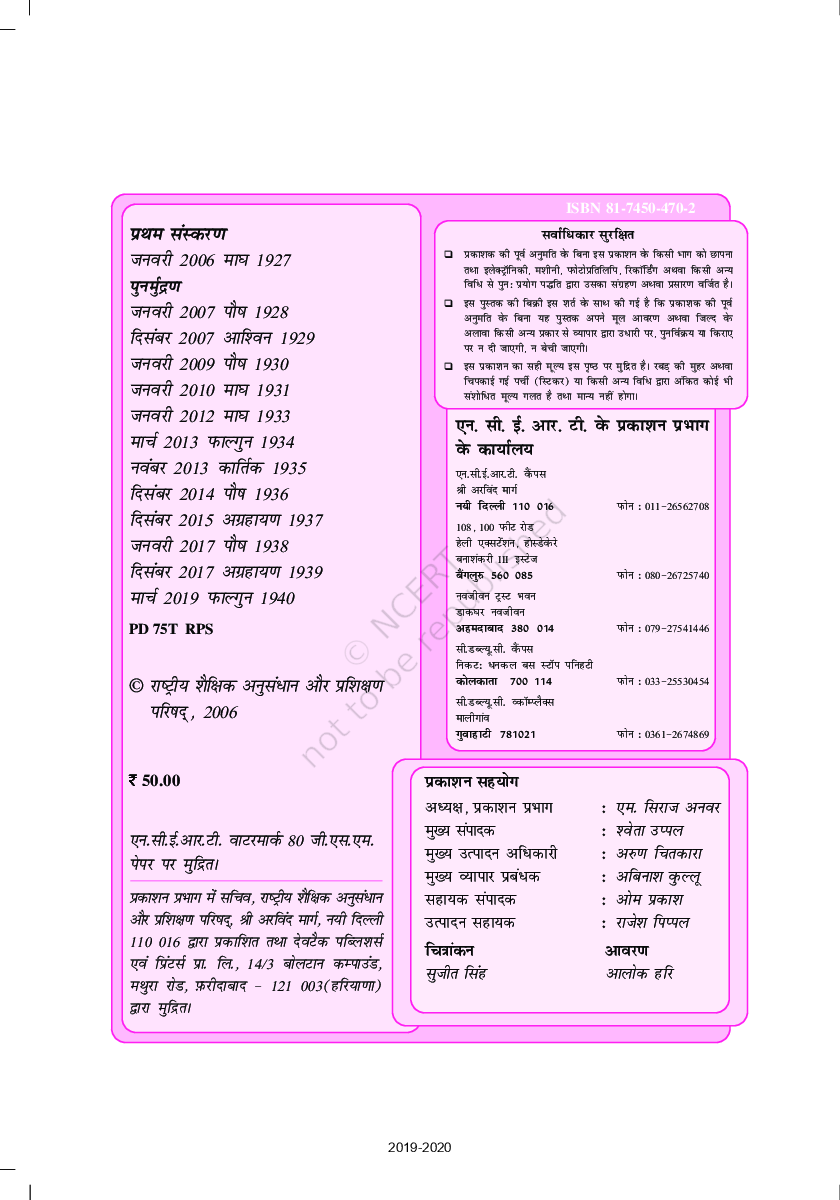 ISBN 81-7450-470-2
प्रथम संस्करण
जनवरी 2006 माघ 1927
पुनर्मुद्रण
जनवरी 2007 पौष 1928
दिसंबर 2007 आश्विन 1929
जनवरी 2009 पौष 1930
जनवरी 2010 माघ 1931
जनवरी 2012 माघ 1933
मार्च 2013 फाल्गुन 1934
नवंबर 2013 कार्तिक 1935
दिसंबर 2014 पौष 1936
दिसंबर 2015 अग्रहायण 1937
जनवरी 2017 पौष 1938
दिसंबर 2017 अग्रहायण 1939
मार्च 2019 फाल्गुन 1940
PD 75T RPS
© राष्ट्रीय शैक्षिक अनुसंधान और प्रशिक्षण
परिषद्, 2006
₹ 50.00
एन.सी.ई.आर.टी. वाटरमार्क 80 जी.एस.एम.
पेपर पर मुद्रित।
प्रकाशन प्रभाग में सचिव, राष्ट्रीय शैक्षिक अनुसंधान
और प्रशिक्षण परिषद्, श्री अरविंद मार्ग, नयी दिल्ली
110 016 द्वारा प्रकाशित तथा देवटैक पब्लिशर्स
एवं प्रिंटर्स प्रा. लि., 14/3 बोलटान कम्पाउंड,
मथुरा रोड, फ़रीदाबाद – 121 003(हरियाणा)
द्वारा मुद्रित।
सर्वाधिकार सुरक्षित
❑ प्रकाशक की पूर्व अनुमति के बिना इस प्रकाशन के किसी भाग को छापना
तथा इलेक्ट्रॉनिकी, मशीनी, फोटोप्रतिलिपि, रिकॉर्डिंग अथवा किसी अन्य
विधि से पुन: प्रयोग पद्धति द्वारा उसका संग्रहण अथवा प्रसारण वर्जित है।
❑ इस पुस्तक की बिक्री इस शर्त के साथ की गई है कि प्रकाशक की पूर्व
अनुमति के बिना यह पुस्तक अपने मूल आवरण अथवा जिल्द के
अलावा किसी अन्य प्रकार से व्यापार द्वारा उधारी पर, पुनर्विक्रय या किराए
पर न दी जाएगी, न बेची जाएगी।
❑ इस प्रकाशन का सही मूल्य इस पृष्ठ पर मुद्रित है। रबड़ की मुहर अथवा
चिपकाई गई पर्ची (स्टिकर) या किसी अन्य विधि द्वारा अंकित कोई भी
संशोधित मूल्य गलत है तथा मान्य नहीं होगा।
एन. सी. ई. आर. टी. के प्रकाशन प्रभाग
के कार्यालय
एन.सी.ई.आर.टी. कैंपस
श्री अरविंद मार्ग
नयी दिल्ली 110 016 फोन : 011-26562708
108, 100 फीट रोड
हेली एक्सटेंशन, होस्डेकेरे
बनाशंकरी III इस्टेज
बैंगलुरु 560 085 फोन : 080-26725740
नवजीवन ट्रस्ट भवन
डाकघर नवजीवन
अहमदाबाद 380 014 फोन : 079-27541446
सी.डब्ल्यू.सी. कैंपस
निकट: धनकल बस स्टॉप पनिहटी
कोलकाता 700 114 फोन : 033-25530454
सी.डब्ल्यू.सी. कॉम्प्लैक्स
मालीगांव
गुवाहाटी 781021 फोन : 0361-2674869
प्रकाशन सहयोग
अध्यक्ष, प्रकाशन प्रभाग : एम. सिराज अनवर
मुख्य संपादक : श्वेता उप्पल
मुख्य उत्पादन अधिकारी : अरुण चितकारा
मुख्य व्यापार प्रबंधक : अबिनाश कुल्लू
सहायक संपादक : ओम प्रकाश
उत्पादन सहायक : राजेश पिप्पल
चित्रांकन आवरण
सुजीत सिंह आलोक हरि
© NCERT
not to be republished
2019-2020